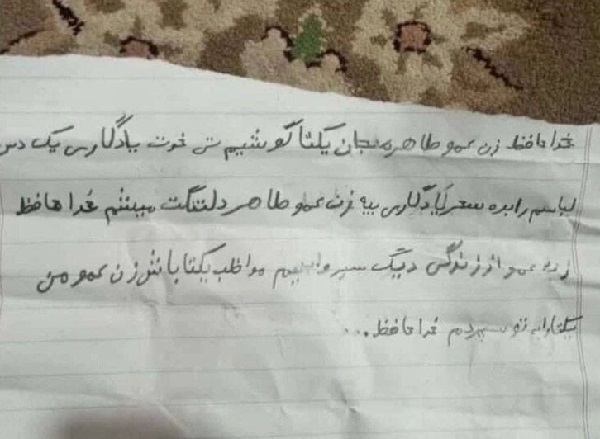 خداحافظ زن عمو طاهره جان یکتا گوشیم پیش خودت یادگاری یک دس
لباسم را بده سحر یادگاری بیه زن عمو طاهر دلتنگت میشم خداحافظ
زن عمو از زندگی دیگه سیر مواظب یکتا باش زن عمو من
یکتا را به تو سپردم خداحافظ...